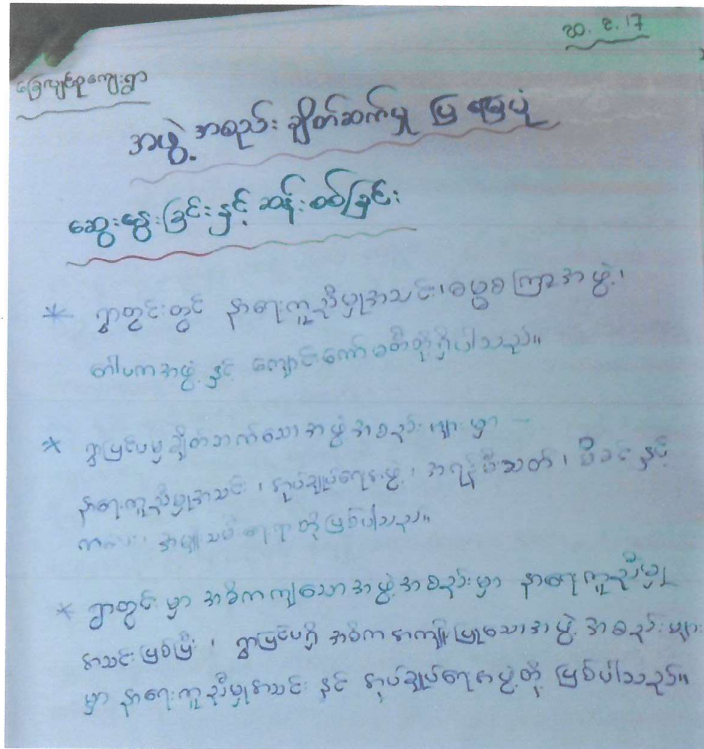 20.2.17
ခြေကျင်းစုကျေးရွာ
အဖွဲ့အစည်း ချိတ်ဆက်မှု ပြ မြေပုံ
ဆွေးနွေးခြင်းနှင့် ဆန်းစစ်ခြင်း
* ရွာတွင်းတွင် နာရေးကူညီမှုအသင်း၊ ဓမ္မစကြာအဖွဲ့၊
ဂေါပကအဖွဲ့ နှင့် ကျောင်းကော်မတီတို့ရှိပါသည်။
* ရွာပြင်ပမှ ချိတ်ဆက်သော အဖွဲ့အစည်းများမှာ
နာရေးကူညီမှုအသင်း၊ အုပ်ချုပ်ရေးအဖွဲ့၊ အရန်မီးသတ်၊ မိခင်နှင့်
ကလေး၊ အမျိုးသမီးရေးရာတို့ဖြစ်ပါသည်။
* ရွာတွင်းမှာ အဓိကကျသော အဖွဲ့အစည်းမှာ နာရေးကူညီမှု
အသင်းဖြစ်ပြီး၊ ရွာပြင်ပရှိ အဓိက အကျိုးပြုသောအဖွဲ့အစည်းများ
မှာ နာရေးကူညီမှုအသင်း နှင့် အုပ်ချုပ်ရေးအဖွဲ့တို့ ဖြစ်ပါသည်။